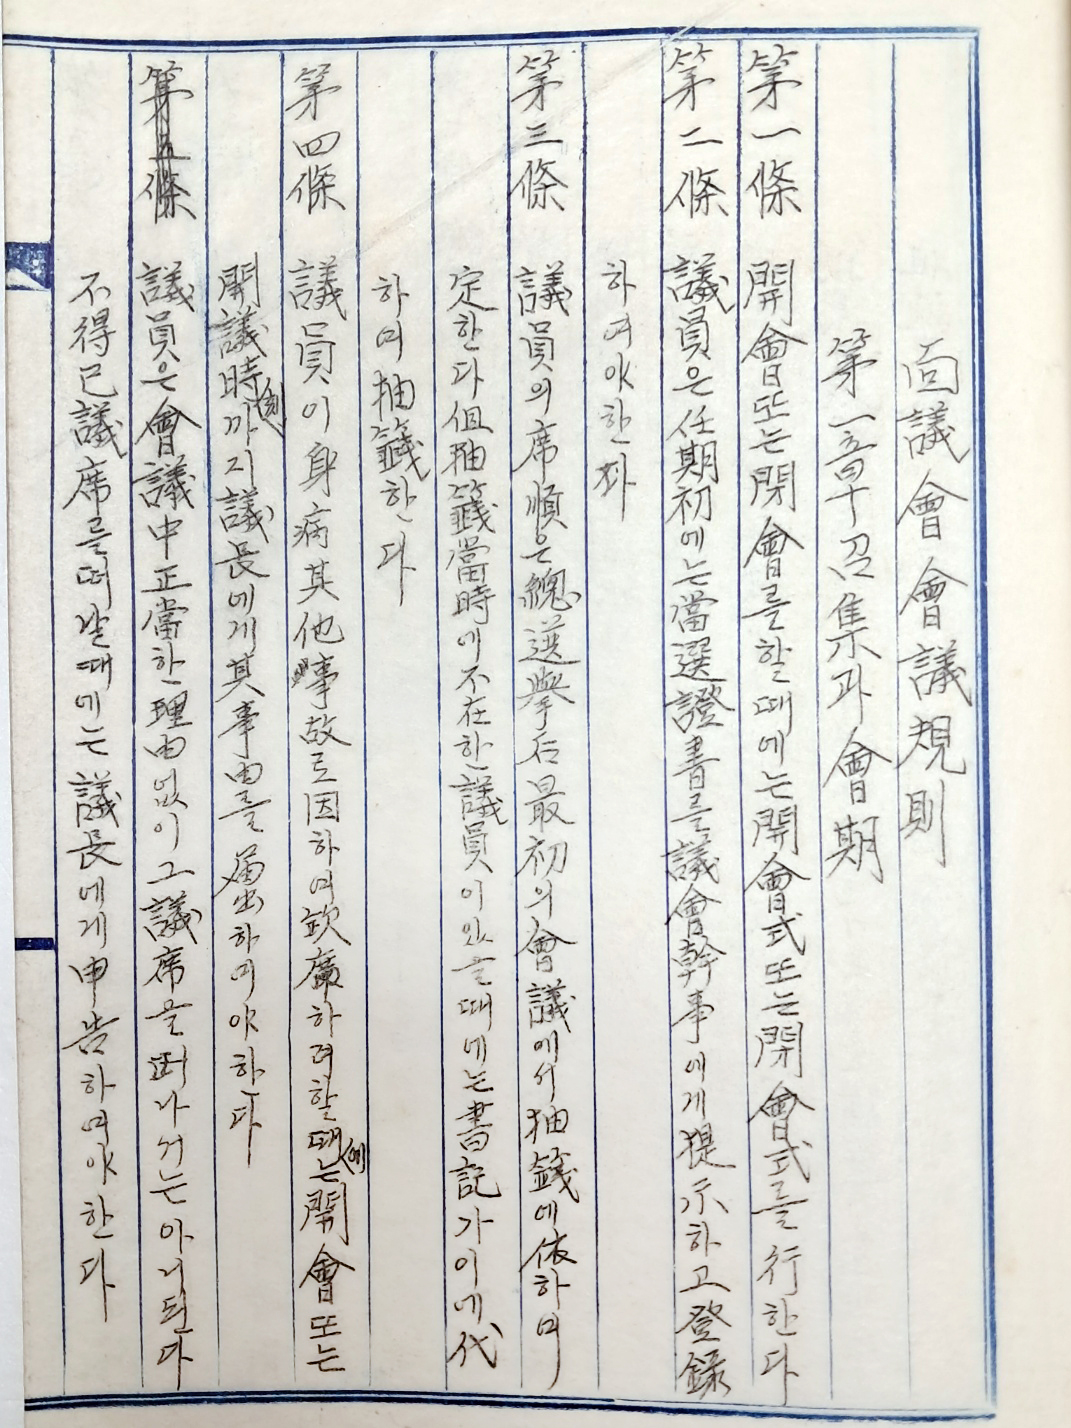 面議會會議規則
第一章 召集과 會期
第一條 開會또는 閉會를 할 때에는 開會式 또는 閉會式를 行한다
第二條 議員은 任期初에는 當選證書를 議會幹事에게 提示하고 登錄
하여야 한다
第三條 議員의 席順은 總選擧后 最初의 會議에서 抽籤에 依하여
定한다 但 抽籤當時에 不在한 議員이 있을 때에는 書記가 이에 代
하여 抽籤한다
第四條 議員이 身病 其他 事故로 因하여 欽席하려 할 때(에)는 開會 또는
開議時(刻)까지 議長에게 其 事由를 届出하여야 한다
第五條 議員은 會議中 正當한 理由없이 그 議席을 떠나거는 아니된다
不得已 議席를 떠날 때에는 議長에게 申告하여야 한다